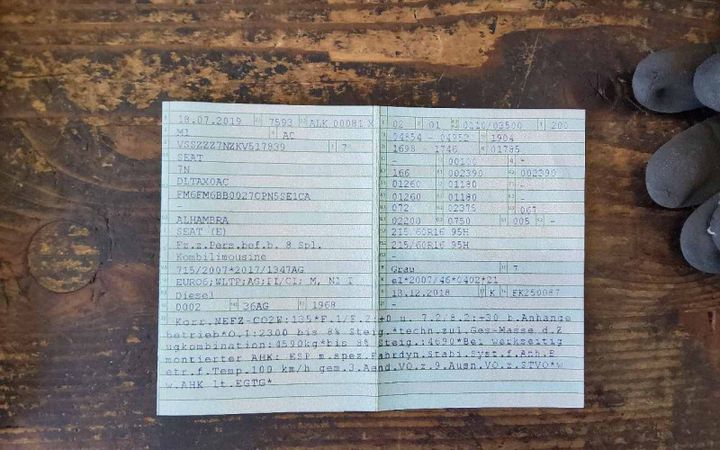 18.07.2019 7593 ALK 00081 X
M1 AC
VSSZZZ7NZKV517839 7
SEAT
7N
DLTAX0AC
FM6FM6BB0027CPN5SE1CA
-
ALHAMBRA
SEAT (E)
Fz.z.Pers.bef.b. 8 Spl.
Kombilimousine
715/2007*2017/1347AG
EURO6;WLTP;AG;
Diesel
0002 36AG 1968
02 01 0110/03500 200
04854 - 04952 1904
1698 - 1746 01785
- 00100 -
166 002390 002390
01260 01180 -
01260 01180 -
072 02375 067
02200 0750 005 -
215/60R16 95H
215/60R16 95H
-
Grau 7
e1*2007/46*0402*21
13.12.2018 K FK250087
Korr.NEFZ-CO2E:135*F.1/F.2:+0 u. 7.2/8.2:+30 b.Anhänge
betrieb*O.1:2300 bis 8% Steig.*techn.zul.Ges-Masse d.Z
ugkombination:4590kg*bis 8% Steig.:4690*Bei werkseitig
montierter AHK: ESP m.spez.Fahrdyn.Stabi.Syst.f.Anh.B
etr.f.Temp.100 km/h gem.3.Aend.VO.z.9.Ausn.VO.z.STVO*w
w.AHK lt.EGTG*